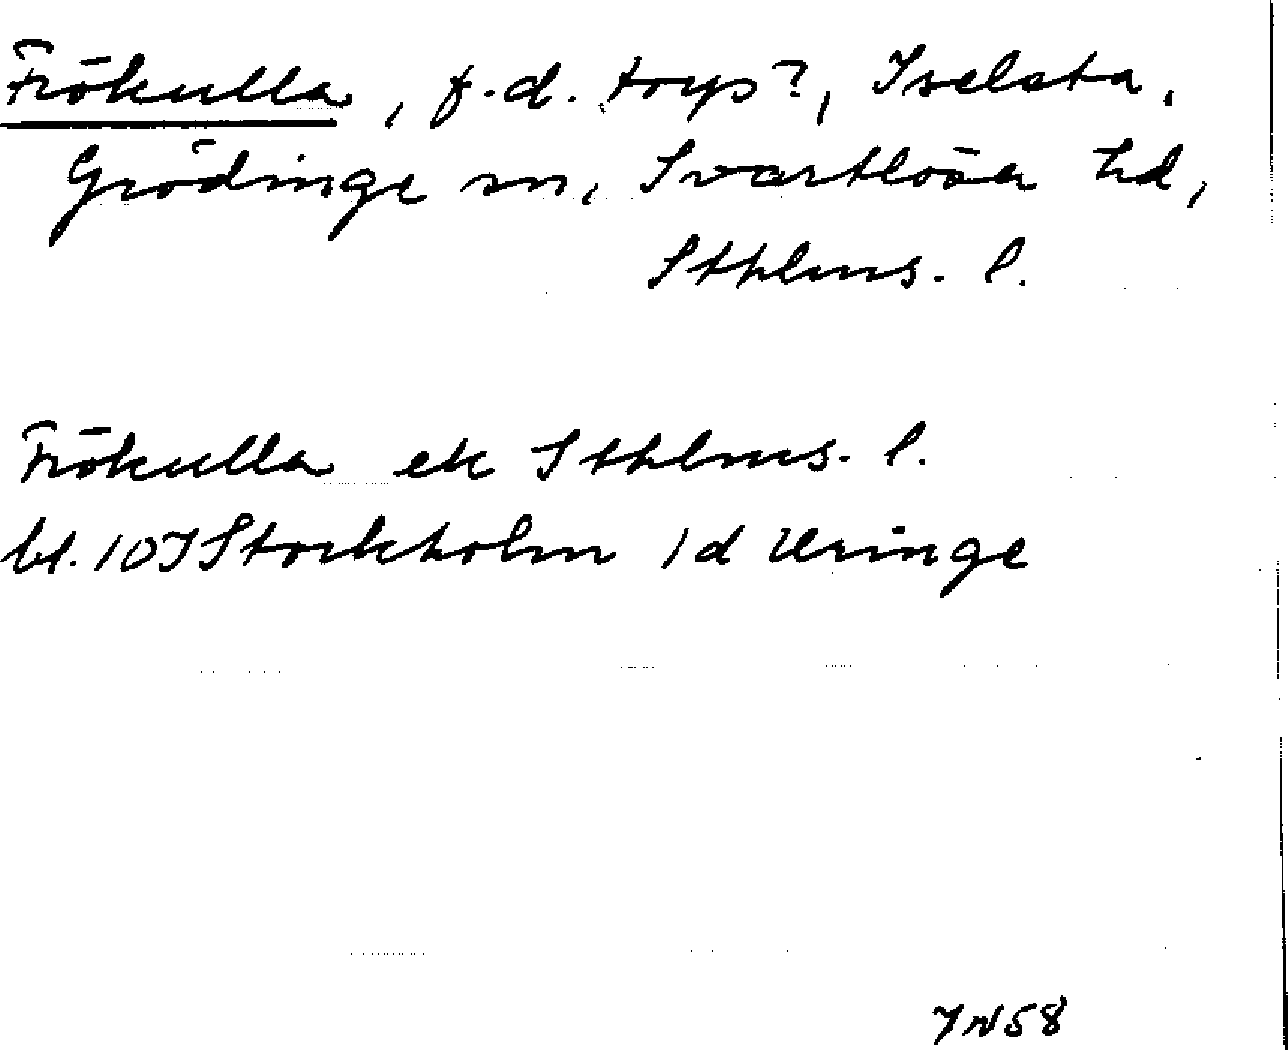 Frökulla, f.d. torp?, Iselsta,
Grödinge sn, Svartlösa hd,
Sthlms. l.
Frökulla ek Sthlms. l.
bl. 10I Stockholm 1d Uringe
IN58